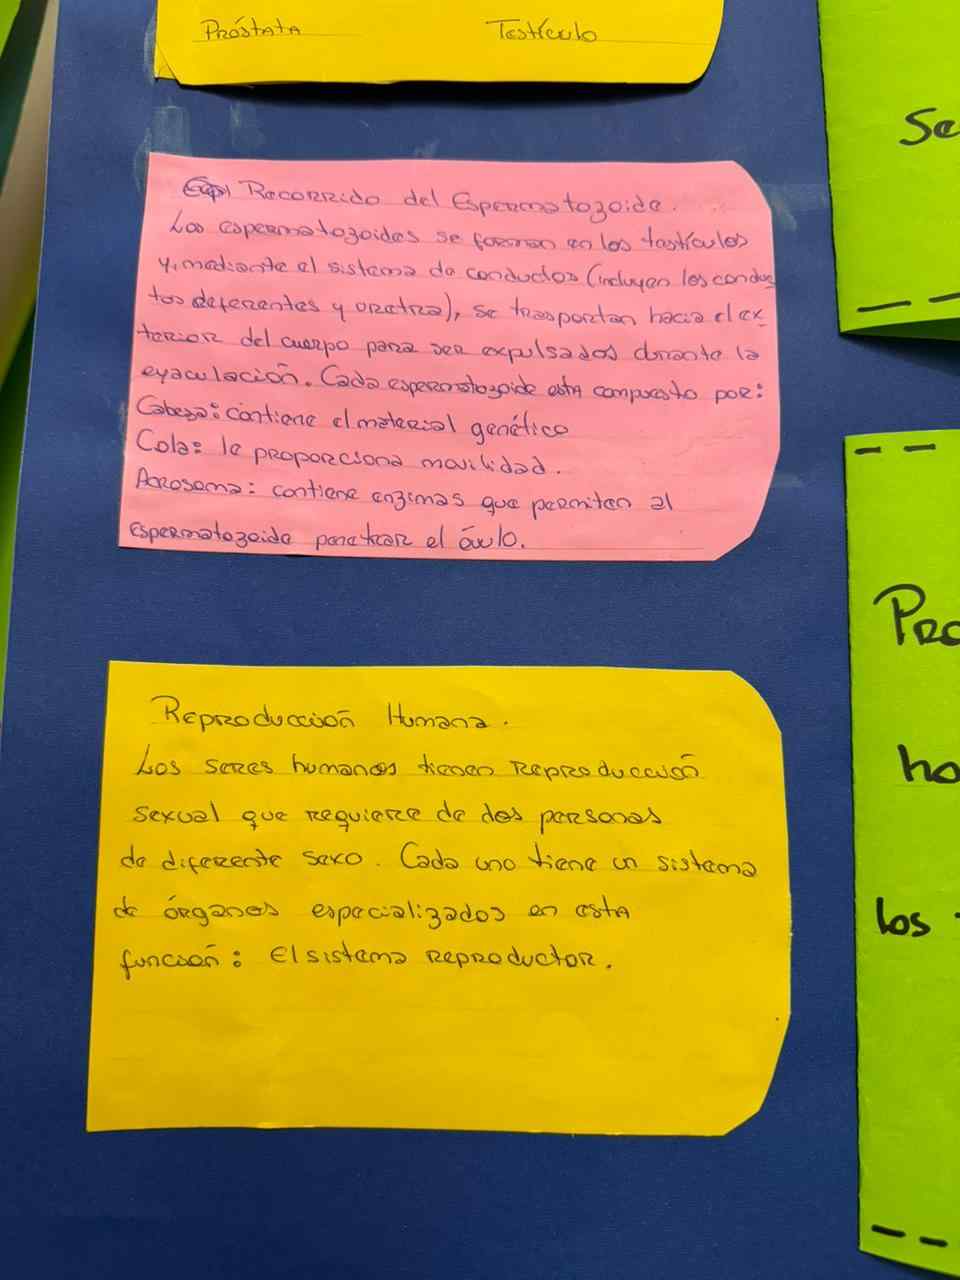 Próstata Testículo
Recorrido del Espermatozoide.
Los espermatozoides se forman en los testículos
y, mediante el sistema de conductos (incluyen los conduc
tos deferentes y uretra), se trasportan hacia el ex-
terior del cuerpo para ser expulsados durante la
eyaculación. Cada espermatozoide esta compuesto por:
Cabeza: contiene el material genético
Cola: le proporciona movilidad.
Acrosoma: contiene enzimas que permiten al
espermatozoide penetrar el óvulo.
Reproducción Humana.
Los seres humanos tienen reproducción
sexual que requiere de dos personas
de diferente sexo. Cada uno tiene un sistema
de órganos especializados en esta
función: El sistema reproductor.
Se
Pro
ho
los